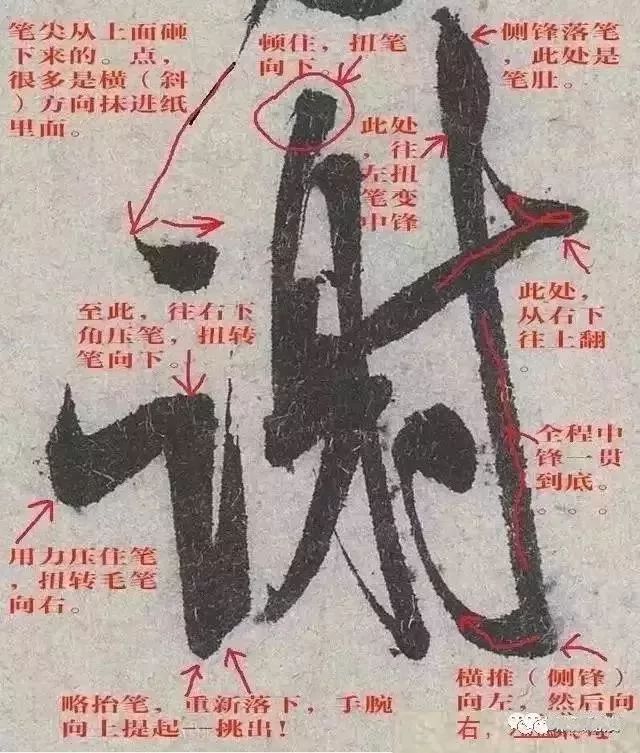 笔尖从上面砸
下来的。点，
很多是横（斜
）方向抹进纸
里面。
顿住，扭笔
向下。
侧锋落笔
，此处是
笔肚。
此处
，往
左扭
笔变
中锋
此处，
从右下
往上翻
。
至此，往右下
角压笔，扭转
笔向下。
谢
全程中
锋一贯
到底。
。。。
用力压住笔
，扭转毛笔
向右。
略抬笔，重新落下，手腕
向上提起--挑出！
横推（侧锋）
向左，然后向
右，